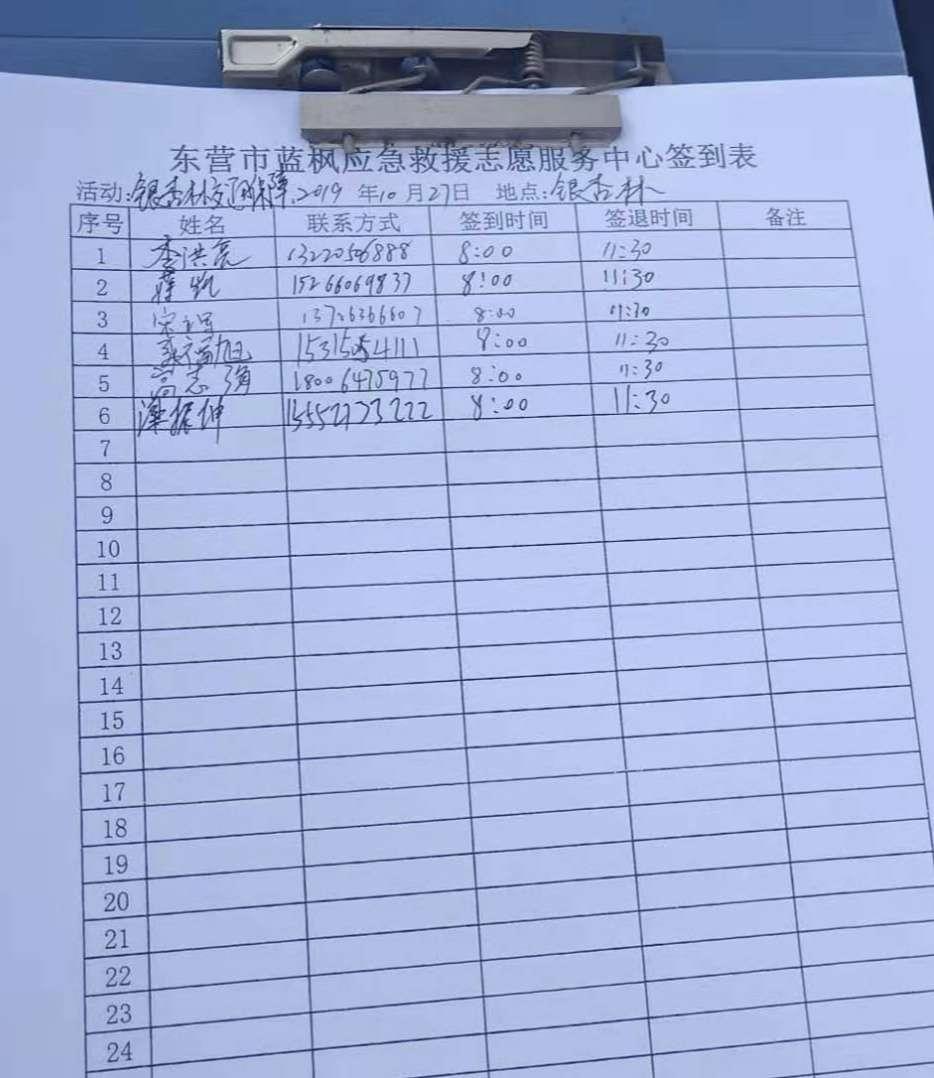 东营市蓝枫应急救援志愿服务中心签到表
活动:银杏林交通保障 2019 年10月27日 地点:银杏林
序号 姓名 联系方式 签到时间 签退时间 备注
1 李洪亮 8:00 11:30
2 薛凯 15266069837 8:00 11:30
3 8:00 11:30
4 15315054111 8:00 11:30
5 高志强 18006475977 8:00 11:30
6 振坤 15552723222 8:00 11:30
7
8
9
10
11
12
13
14
15
16
17
18
19
20
21
22
23
24